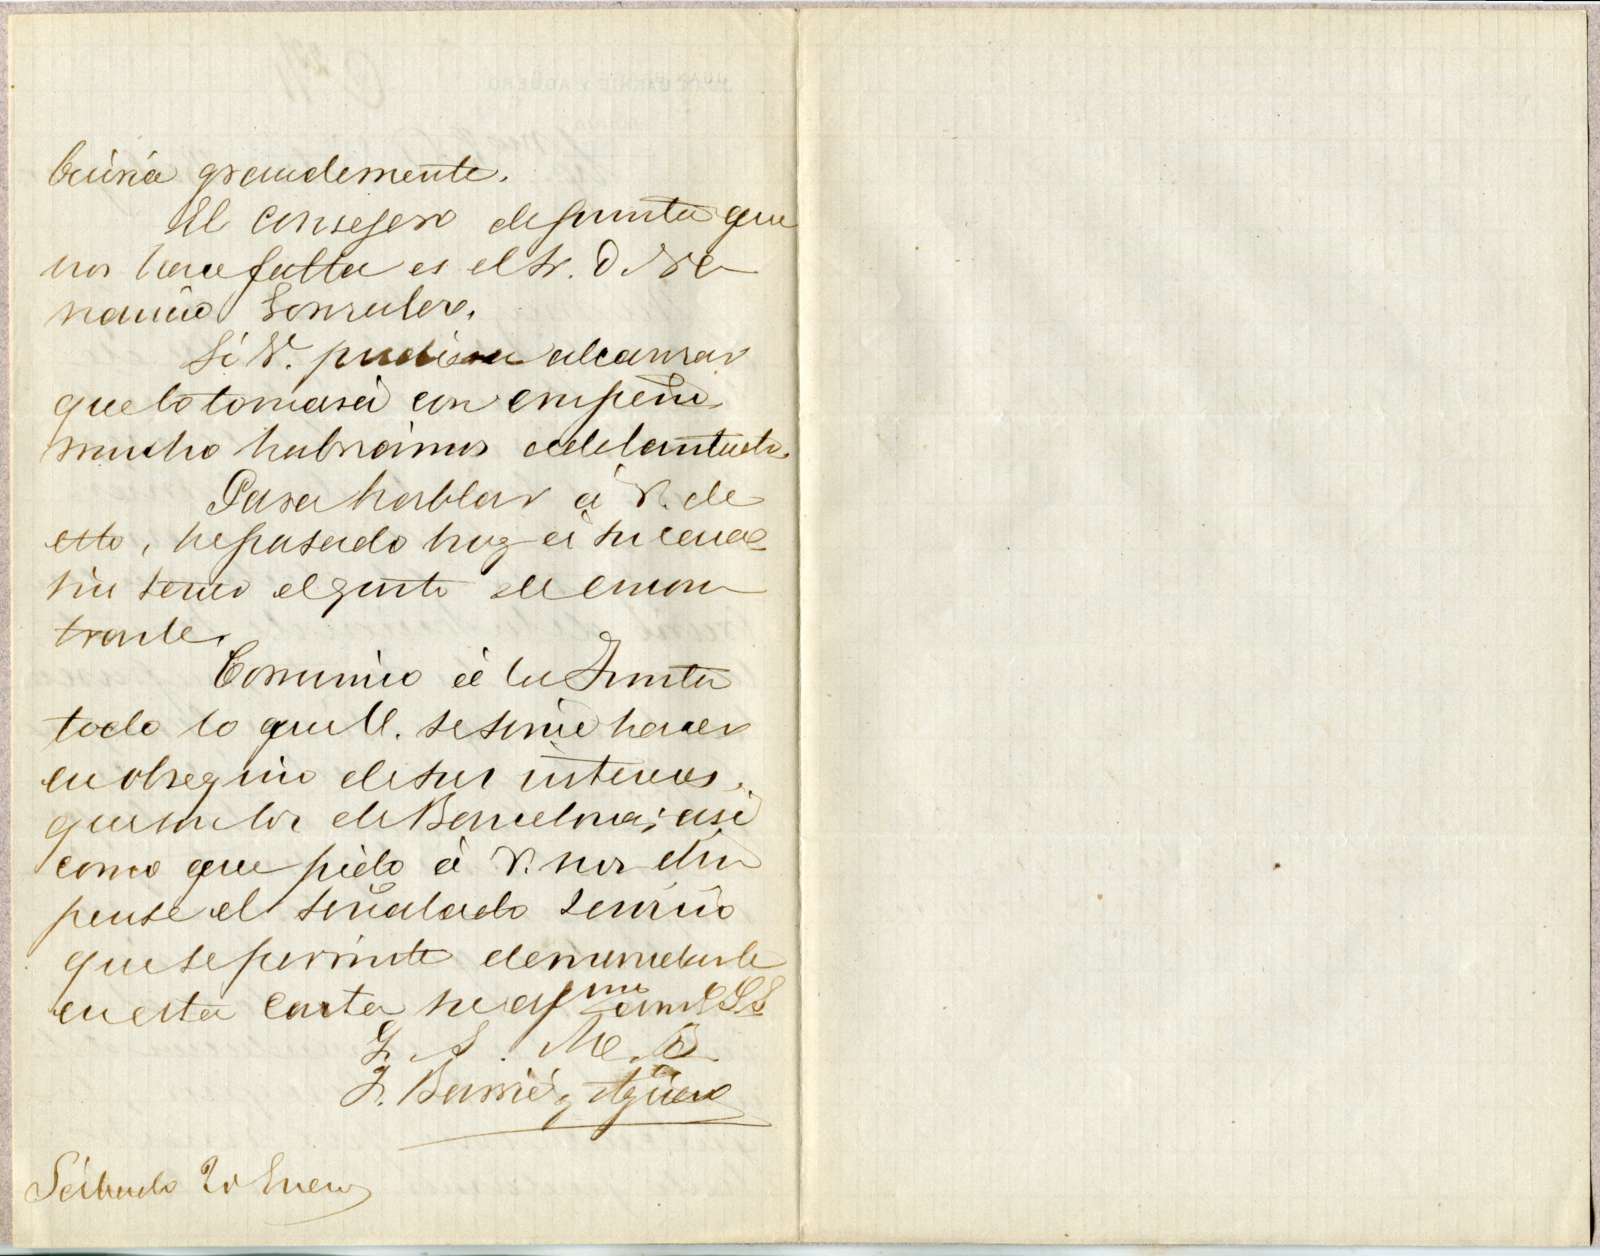 buiría grandemente.
El consejero de Junta que
nos hace falta es el Sr. D. Ve
nancio Gonzalez.
Si V. pudiera alcanzar
que lo tomará con empeño
mucho habriamos adelantado.
Para hablar á V. de
esto, he pasado hoy á su casa
sin tener el gusto de encon
trarle.
Comunico á la Junta
todo lo que V. se sirve hacer
en obsequio de sus intereses,
que son los de Barcelona; así
como que pido á V. nos dis
pense el señalado servicio
que se permite demandarle
en esta carta su af.mo am. S S S
Q. S. M. B.
J. Barrié y Agüero
Sábado 20 Enero